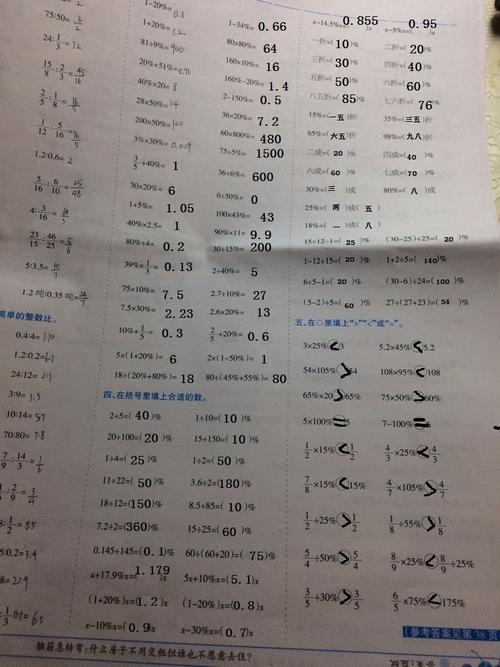 75:50=3/2
24:1/3=72
15/8:2/3=45/16
2/5:1/8=16/5
1/12:5/16=
1.2:0.6=2
5/16:6/10=25/48
4:3/16=
23/15:46/25=5/6
5:3.5=10/7
1.2吨:0.35吨=24/7
简单的整数比。
0.4:4=1:10
1.2:0.2=6:1
24:12=2:1
3:9=1:3
10:14=5:7
70:80=7:8
7/9:14/3=1/6
1-20%=0.8
1+20%=1.2
81÷9%=900
20%+51%=0.71
40%×20=8
28×50%=14
200×50%=100
3%×30%=0.009
3/5+40%=1
30×20%=6
1+5%=1.05
40%×2.5=1
80%÷4=0.2
39%×1/3=0.13
75×10%=7.5
7.5×30%=2.23
10%+1/5=0.3
5×(1+20%)=6
18÷(20%+80%)=18
1-34%=0.66
80×80%=64
160×10%=16
160%-20%=1.4
2-150%=0.5
36×20%=7.2
60×800%=480
75÷5%=1500
36÷6%=600
0÷50%=0
100×43%=43
90%×11=9.9
30÷15%=200
2÷40%=5
2.7÷10%=27
2.6×20%=13
2/5+20%=0.6
2×(1-50%)=1
80÷(45%+55%)=80
四、在括号里填上合适的数。
2÷5=(40)% 1÷10=(10)%
20÷100=(20)% 15÷150=(10)%
1÷4=(25)% 1÷2=(50)%
11÷22=(50)% 3.6÷2=(180)%
18÷12=(150)% 8.5÷85=(10)%
7.2÷2=(360)% 15÷25=(60)%
0.145÷145=(0.1)% 60÷(60+20)=(75)%
x+17.9%x=(1.179)x 5x+10%x=(5.1)x
(1+20%)x=(1.2)x (1-20%)x=(0.8)x
x-10%x=(0.9)x x-30%x=(0.7)x
x-14.5%x=(0.855)x x-5%x=(0.95)x
一折=(10)% 二折=(20)%
三折=(30)% 四折=(40)%
五折=(50)% 六折=(60)%
八五折=(85)% 七六折=(76)%
15%=(一五)折 35%=(三五)折
65%=(六五)折 98%=(九八)折
二成=(20)% 四成=(40)%
六成=(60)% 七成=(70)%
30%=(三)成 80%=(八)成
25%=(两)成(五)
18%=(一)成(八)
15÷12-1=(25)% (30-25)÷25=(20)%
1-12÷15=(20)% 1+2÷5=(140)%
6÷5-1=(20)% (30-6)÷24=(100)%
(5-2)÷5=(60)% 27÷(27+23)=(54)%
五、在○里填上“>”“<”或“=”。
3×25%<3 5.2×45%<5.2
54×105%>54 108×95%<108
65%×20>65% 75×50%>60%
5×100%=5 7-100%=
1/2×15%<1/2 4/3×25%<4/3
7/8×15%<15% 4/7×105%>4/7
1/2÷25%>1/2 1/8÷55%>1/8
5/4÷50%>5/4 8/9×25%<8/9÷25%
3/5÷30%>3/5 6/5×75%<175%
【参考答案见第38页】
脑筋急转弯:什么房子不用交租但谁也不愿意去住?